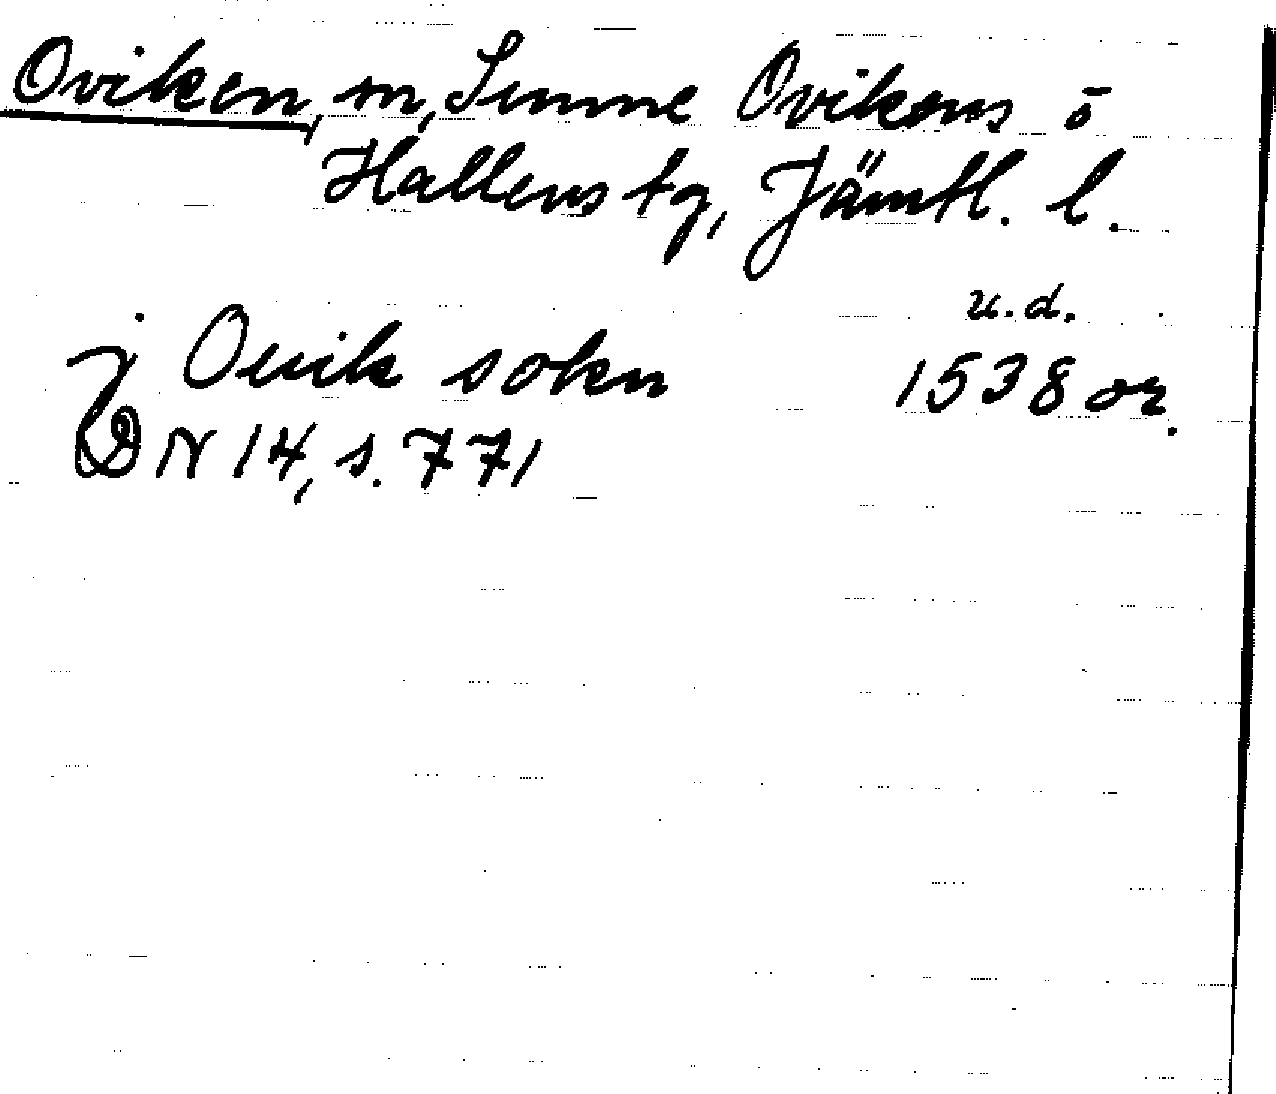 Oviken, sn, Sunne Ovikens o
Hallens tg, Jämtl. l.
u.d.
j Ouik sokn 1538 or.
DN 14, s. 771